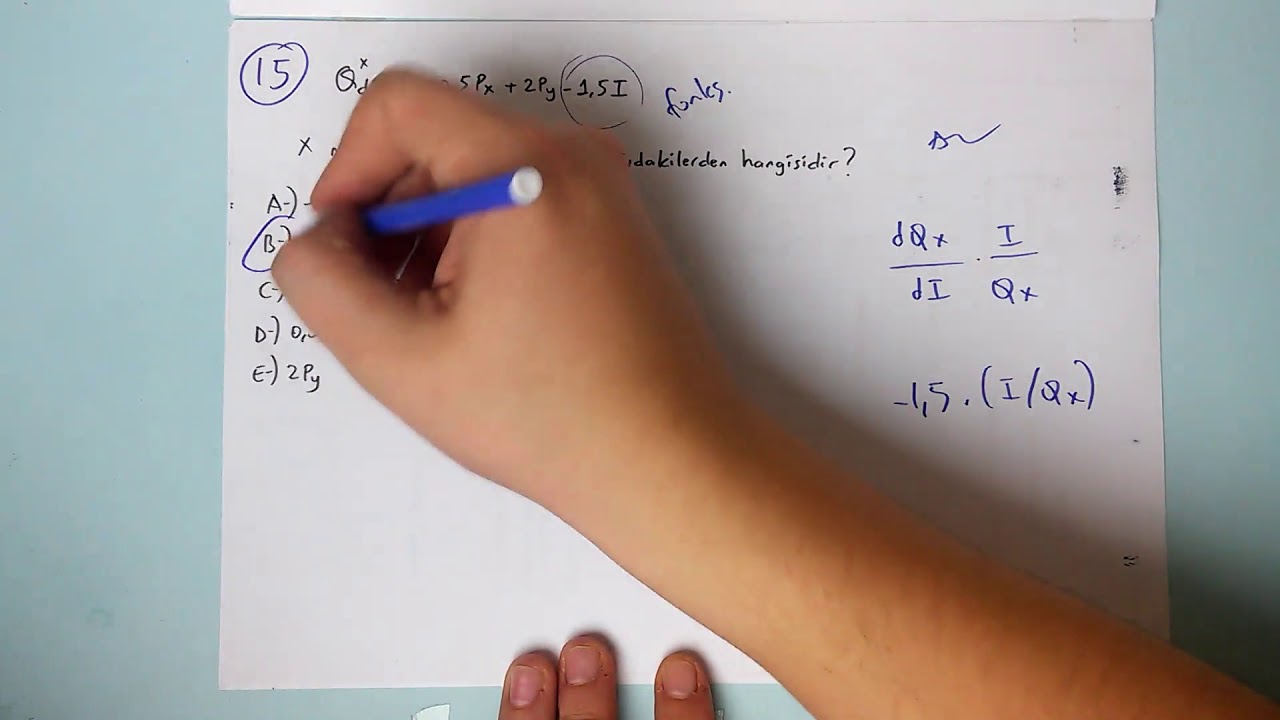 15
Qd x 5Px + 2Py - 1,5I fonks.
x dakilerden hangisidir?
A-) -
B-)
C-)
D-) 0,
E-) 2Py
dQx / dI . I / Qx
-1,5 . (I/Qx)